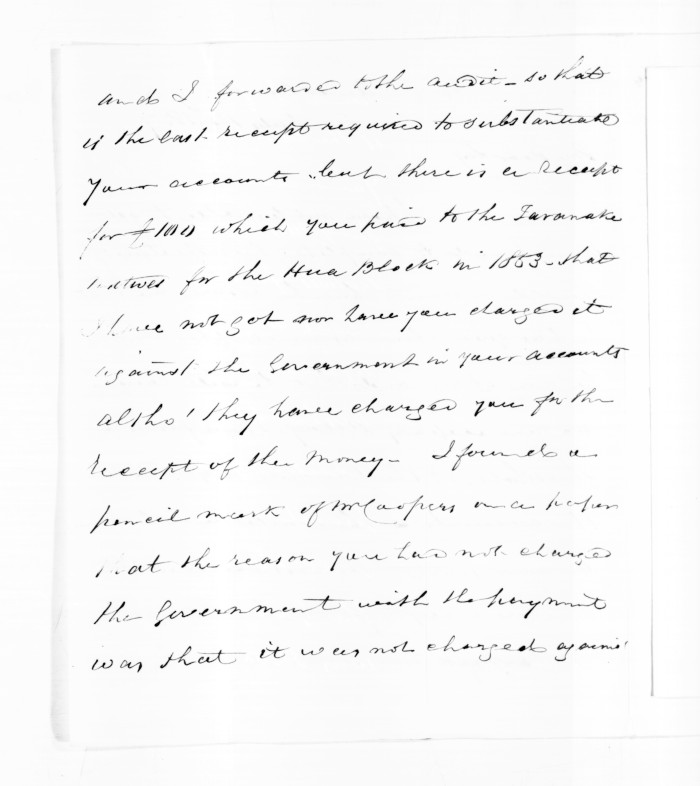 and I forwarded to the audit - so that
is the last receipt required to substantiate
your accounts - but there is a receipt
for £100 which you paid to the Taranake
natives for the Hua Block in 1853 - that
I have not got nor have you charged it
against the Government in your accounts
altho' they have charged you for the
receipt of the money - I found a
pencil mark of Mr Coopers on a paper
that the reason you had not charged
the Government with the payment
was that it was not charged against